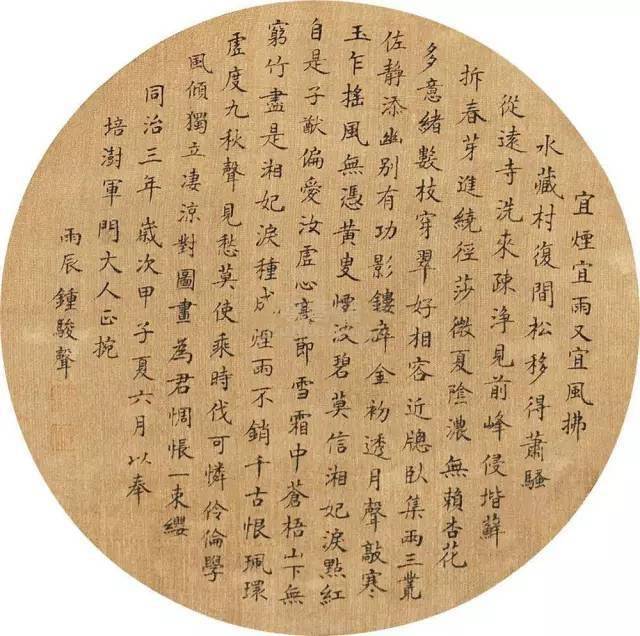 宜煙宜雨又宜風拂
水藏村復間松移得蕭騷
從遠寺洗來疎淨見前峰侵堦蘚
拆春芽迸繞徑莎微夏陰濃無賴杏花
多意緒數枝穿翠好相容近牕臥集兩三叢
佐靜添幽別有功影鏤碎金初透月聲敲寒
玉乍搖風無憑黃叟煙波碧莫信湘妃淚點紅
自是子猷偏愛汝虛心高節雪霜中蒼梧山下無
窮竹盡是湘妃淚種成煙雨不銷千古恨珮環
虛度九秋聲見愁莫使乘時伐可憐伶倫學
風傾獨立淒涼對圖畫為君惆悵一束纓
同治三年歲次甲子夏六月以奉
培澍軍門大人正捥
雨辰鍾駿聲